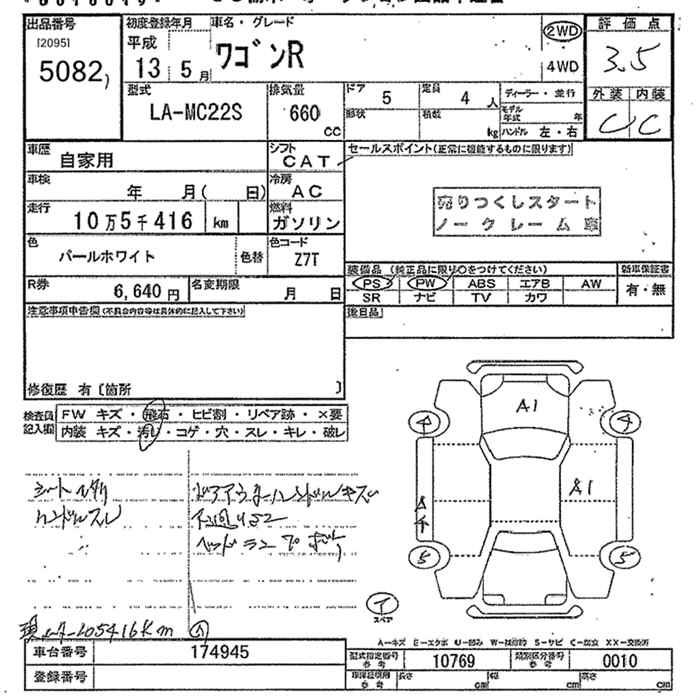 出品番号
[20951]
5082
初度登録年月
平成
13 5月
車名・グレード
ワゴンR
2WD
4WD
評価点
3.5
外装 内装
C C
型式
LA-MC22S
排気量
660
CC
ドア
5
定員
4 人
形状
積載
kg
ディーラー・並行
モデル年式 年
ハンドル 左・右
車歴
自家用
シフト
CAT
セールスポイント(正常に機能するものに限ります)
車検
年 月( 日)
冷房
AC
売りつくしスタート
ノークレーム車
走行
10万5千416 km
燃料
ガソリン
色
パールホワイト
色替
色コード
Z7T
装備品(純正品に限り○をつけてください)
新車保証書
PS PW ABS エアB AW
有・無
SR ナビ TV カワ
R券
6,640円
名変期限
月 日
後日品
注意事項申告欄(不具合内容等は具体的に記入して下さい)
修復歴 有〔箇所 〕
検査員記入欄
FW キズ・飛石・ヒビ割・リペア跡・×要
内装 キズ・汚レ・コゲ・穴・スレ・キレ・破レ
A1
A1
4 4
5 5
シートヘタリ
ハンドルスレ
ドアアウターハンドルキズ
スペア
現メーター105416Km
A-キズ E-エクボ U-凹み W-補修跡 S-サビ C-腐食 XX-交換済
車台番号
174945
登録番号
型式指定番号
参考
10769
類別区分番号
参考
0010
長さ cm
幅 cm
高さ cm